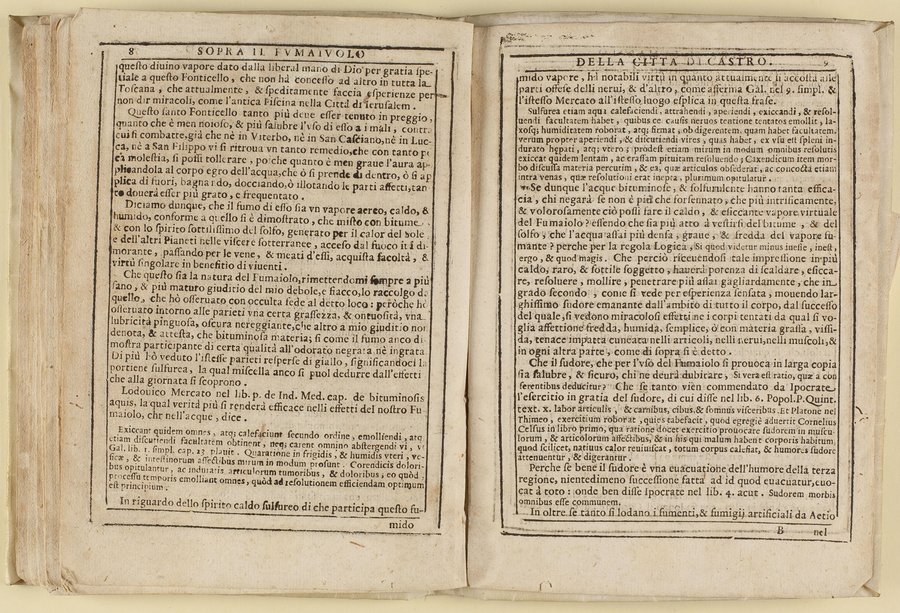 8 SOPRA IL FVMAIVOLO
questo diuino vapore dato dalla liberal mano di Dio per gratia spe-
tiale a questo Fonticello, che non hà concesso ad altro in tutta la
Toscana, che attualmente, & speditamente faccia esperienze per
non dir miracoli, come l'antica Piscina nella Città di Ierusalem.
Questo santo Fonticello tanto più deue esser tenuto in preggio,
quanto che è men noioso, & più salubre l'vso di esso a i mali, contr.
cui si combatte, già che nè in Viterbo, nè in San Casciano, nè in Luc-
ca, nè a San Filippo vi si ritroua vn tanto remedio, che con tanto po
ca molestia, si possi tollerare, poiche quanto è men graue l'aura ap-
plicandola al corpo egro dell'acqua, che ò si prende di dentro, ò si ap
plica di fuori, bagnando, docciando, ò illotando le parti affetti, tan
to douerà esser più grato, e frequentato.
Diciamo dunque, che il fumo di esso sia vn vapore aereo, caldo, &
humido, conforme a quello si è dimostrato, che misto con bitume
& con lo spirito sottilissimo del solfo, generato per il calor del Sole
e dell'altri Pianeti nelle viscere sotterranee, acceso dal fuoco iui di-
morante, passando per le vene, & meati d'essi, acquista facoltà, &
virtù singolare in benefitio di viuenti.
Che questo sia la natura del Fumaiolo, rimetterdomi sempre a più
sano, & più maturo giuditio del mio debole, e fiacco, lo raccolgo da
quello, che hò osseruato con occulta fede al detto loco: peròche hò
osseruato intorno alle parieti vna certa grassezza, & ontuosità, vna
lubricità pinguosa, oscura nereggiante, che altro a mio giuditio non
denota, & attesta, che bituminosa materia, si come il fumo anco di-
mostra participante di certa qualità all'odorato negrata nè ingrata
Di più hò veduto l'istesse parieti resperse di giallo, significandoci la
portione sulfurea, la qual miscella anco si puol dedurre dall'effetti
che alla giornata si scoprono.
Lodouico Mercato nel lib. p. de Ind. Med. cap. de bituminosis
aquis, la qual verità più si renderà efficace nelli effetti del nostro Fu-
maiolo, che nell'acque, dice.
Exiccant quidem omnes, atq; calefaciunt secundo ordine, emolliendi, atq;
etiam discutiendi facultatem obtinent, neq; carent omnino abstergendi vi, vt
Gal. lib. 1. simpl. cap. 23. plauit. Quaratione in frigidis, & humidis vteri, ve-
sicæ, & intestinorum affectibus mirum in modum prosunt. Corendicis dolori-
bus opitulantur, ac induratis articulorum tumoribus, & doloribus, eo quòd
processu temporis emolliant omnes, quòd ad resolutionem efficiendam optimum
est principium.
In riguardo dello spirito caldo sulfureo di che participa questo fu-
mido
DELLA CITTA DI CASTRO. 9
mido vapore, hà notabili virtù in quanto attualmente si accosta alle
parti offese delli nerui, & d'altro, come asserina Gal. nel 9. simpl. &
l'istesso Mercato all'istesso luogo esplica in questa frase.
Sulfurea etiam aqua calefaciendi, attrahendi, aperiendi, exiccandi, & resol-
uendi facultatem habet, quibus ex causis neruos tentione tentatos emollit, la-
xosq; humiditatem roborat, atq; firmat, ob digerentem, quam habet facultatem.
verum propter aperiendi, & discutiendi vires, quas habet, ex vsu est spleni in-
durato hepati, atq; vtero; prodest etiam mirum in modum omnibus resolutis
exiccat quidem lentam, ac crassam pituitam resoluendo; Caxendicum item mor-
bo discussa materia percutim, & ea, quæ articulos obsederat, ac concocta etiam
intra venas, quæ resolutioni erat inepta, plurimum opitulatur.
Se dunque l'acque bituminose, & solfurulente hanno tanta effica-
cia, chi negarà se non è più che forsennato, che più intrificamente,
& volorosamente ciò possi fare il caldo, & esiccante vapore virtuale
del Fumaiolo? essendo che sia più atto à vestirsi del bitume, & del
solfo, che l'acqua assai più densa, graue, & fredda del vapore fu-
mante? perche per la regola Logica, Si quod videtur minus inesse, inest,
ergo, & quod magis. Che perciò riceuendosi tale impressione in più
caldo, raro, & sottile soggetto, hauerà porenza di scaldare, esicca-
re, resoluere, mollire, penetrare più assai gagliardamente, che in
grado secondo, come si vede per esperienza sensata, mouendo lar-
ghissimo sudore emanante dall'ambito di tutto il corpo, dal successo
del quale, si vedono miracolosi effetti ne i corpi tentati da qual si vo-
glia affettione fredda, humida, semplice, ò con materia grassa, vissi-
da, tenace impatta cuneata nelli articoli, nelli nerui, nelli muscoli, &
in ogni altra parte, come di sopra si è detto.
Che il sudore, che per l'vso del Fumaiolo si prouoca in larga copia
sia salubre, & sicuro, chi ne deurà dubitare, Si vera est ratio, quæ à con
serentibus deducitur? Che se tanto vien commendato da Ipocrate
l'esercitio in gratia del sudore, di cui disse nel lib. 6. Popol. P. Quint.
text. x. labor articulis, & carnibus, cibus, & somnus visceribus. Et Platone nel
Thimeo, exercitium roborat, quies tabefacit, quod egregiè aduertit Cornelius
Celsus in libro primo, qua ratione docet exercitio prouocare sudorem in muscu-
lorum, & articolorum affectibus, & in his qui malum habent corporis habitum,
quod scilicet, natiuus calor reuiuiscat, totum corpus calefiat, & humores sudore
attenuentur, & digerantur.
Perche se bene il sudore è vna euacuatione dell'humore della terza
regione, nientedimeno successione fatta ad id quod euacuatur, euo-
cat à toto: onde ben disse Ipocrate nel lib. 4. acut. Sudorem morbis
omnibus esse communem.
In oltre se tanto si lodano i fumenti, & sumigij artificiali da Aetio
B nel